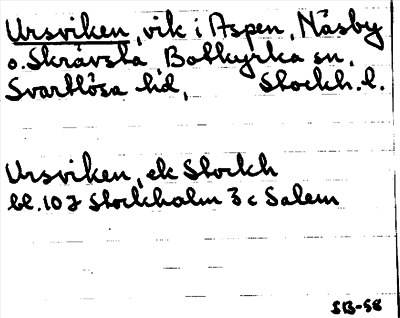 Ursviken, vik i Aspen, Näsby
o. Skrävsta Botkyrka sn,
Svartlösa hd, Stockh. l.
Ursviken, ek Stockh
bl. 10 J Stockholm 3 c Salem
SB-58